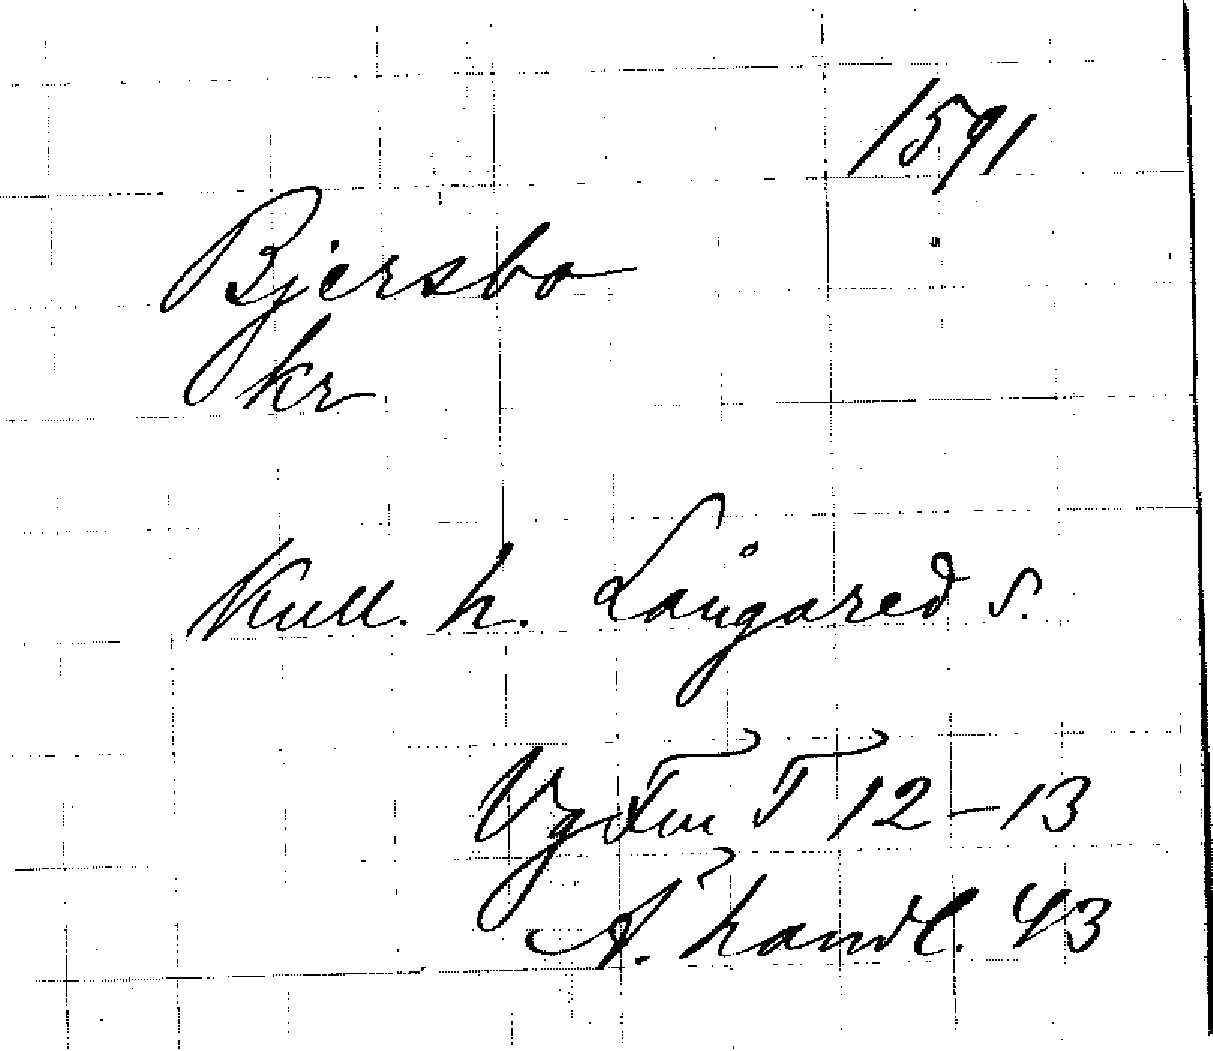 1591
Bjersbo
kr
Kull. h. Långared s.
Vg Fru T 12-13
A. handl. 43